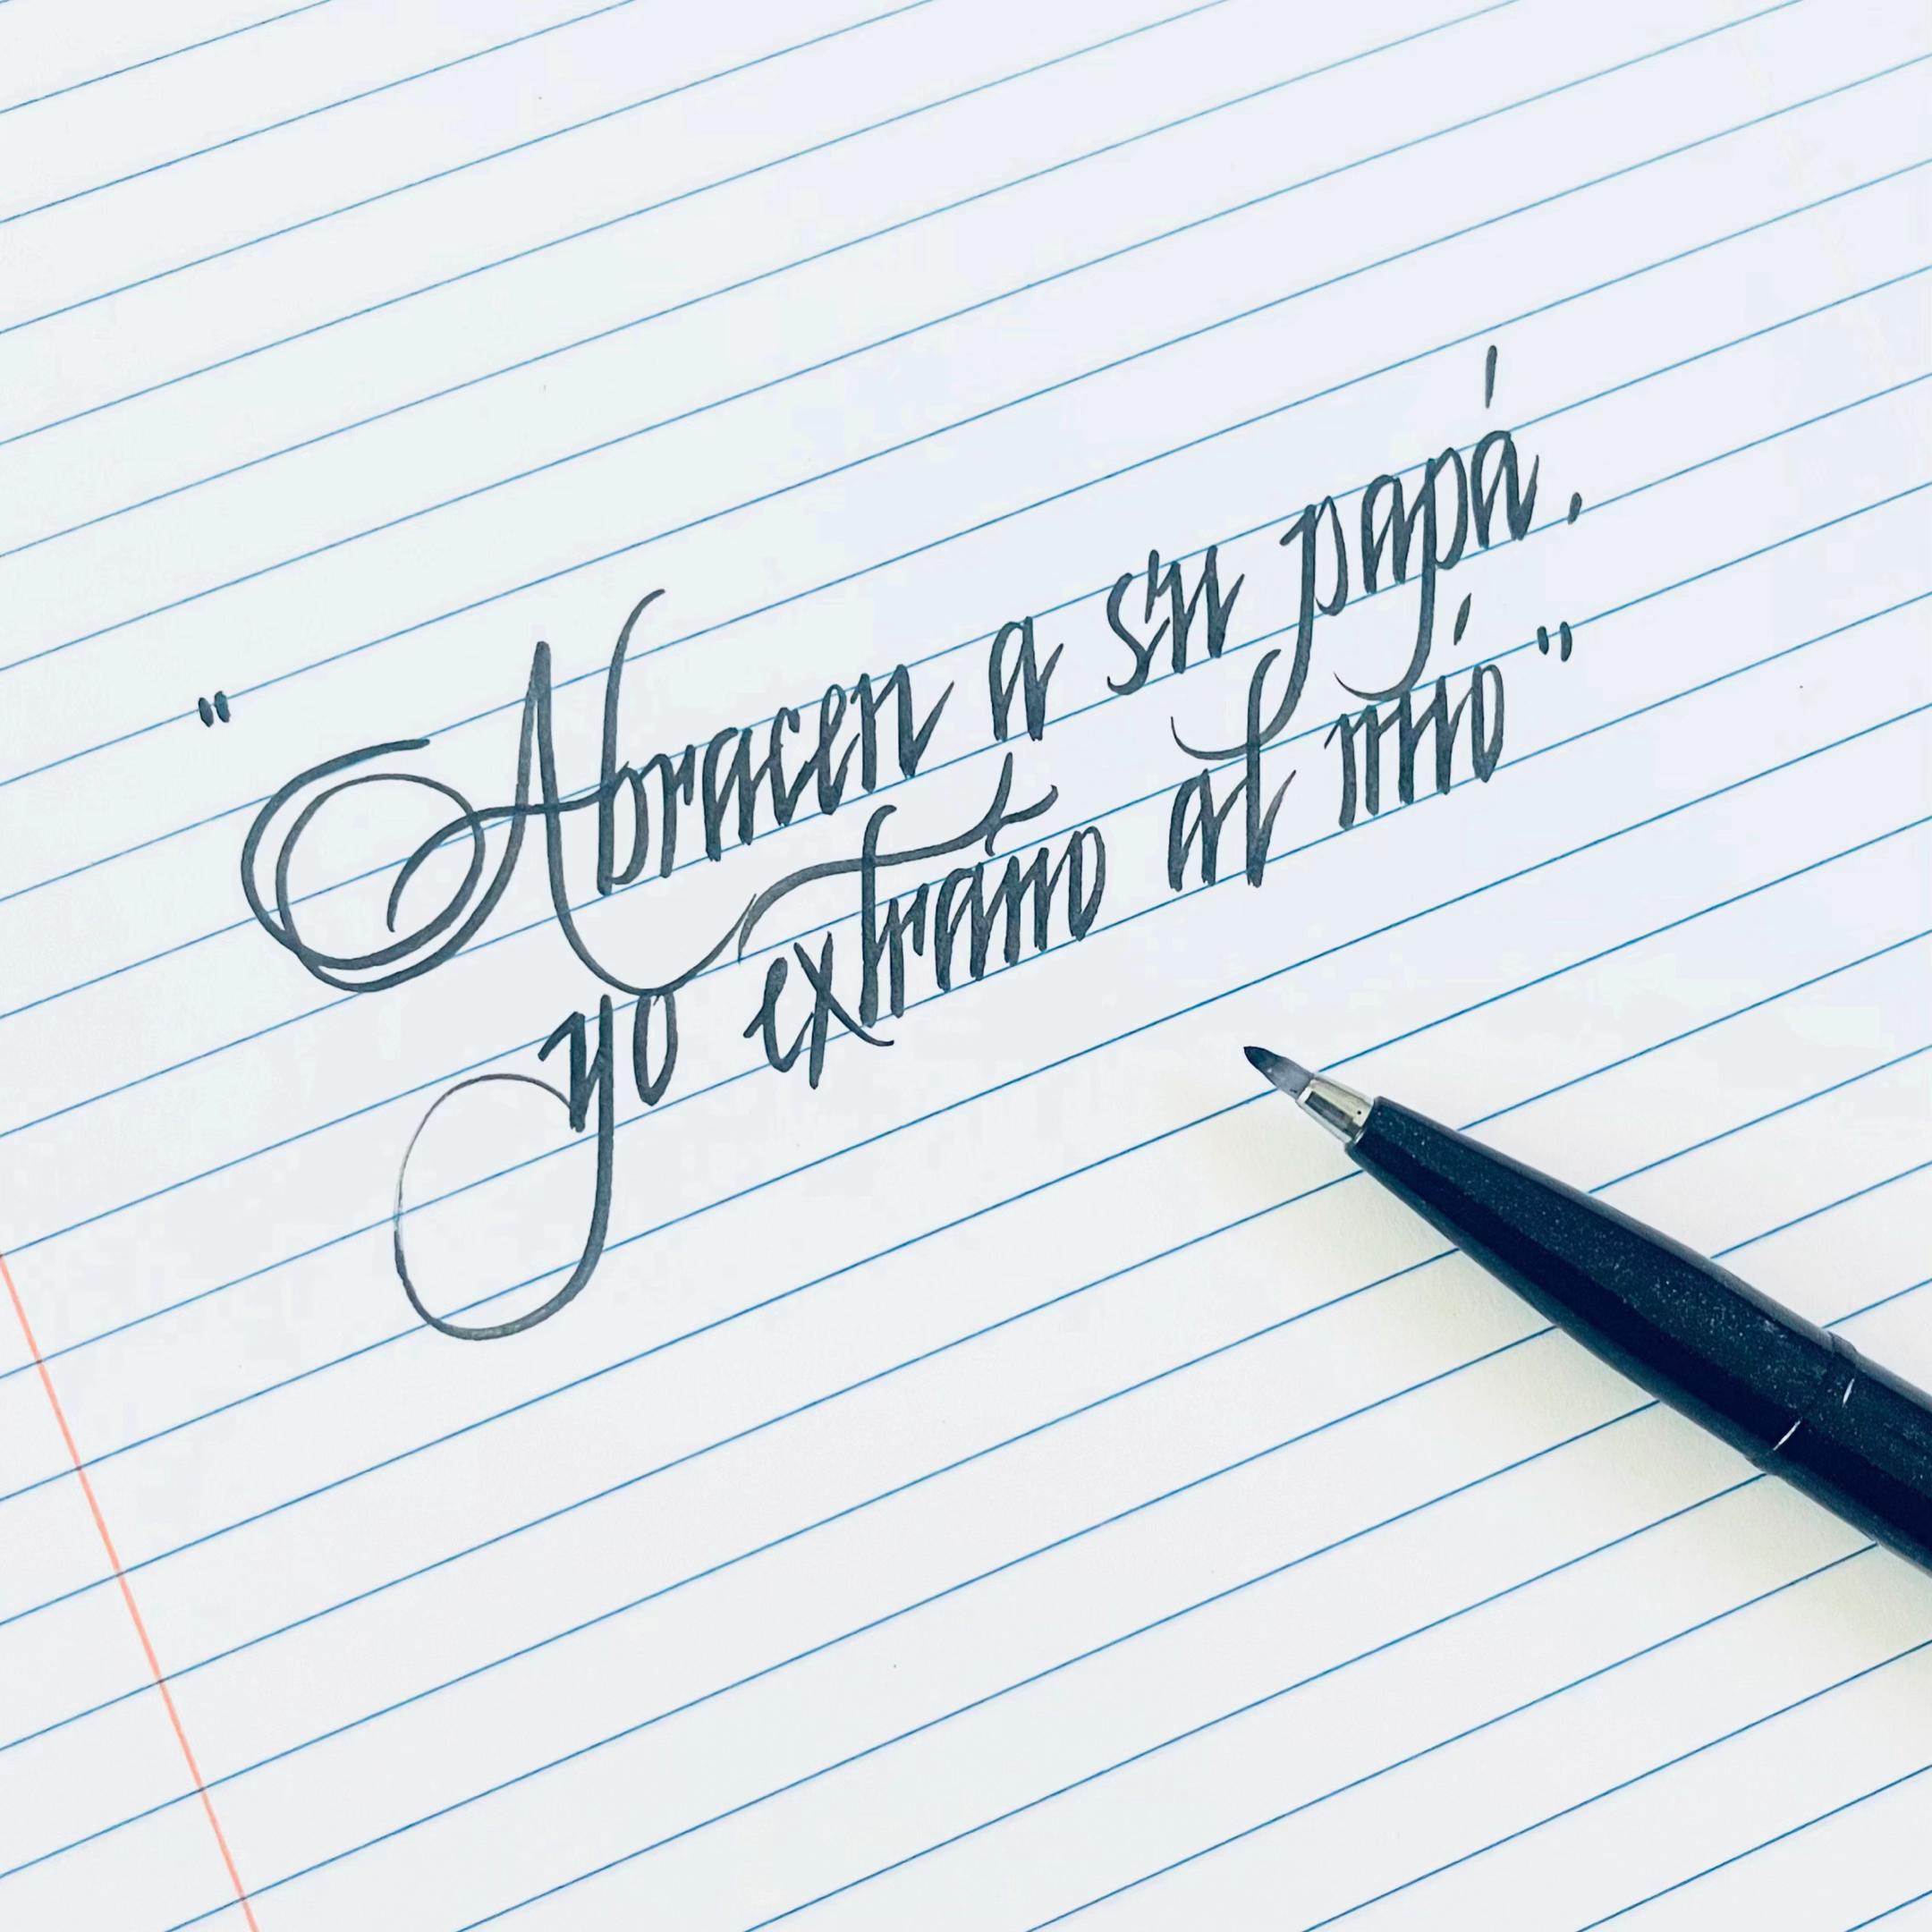 "Abracen a su papá,
yo extraño al mío"